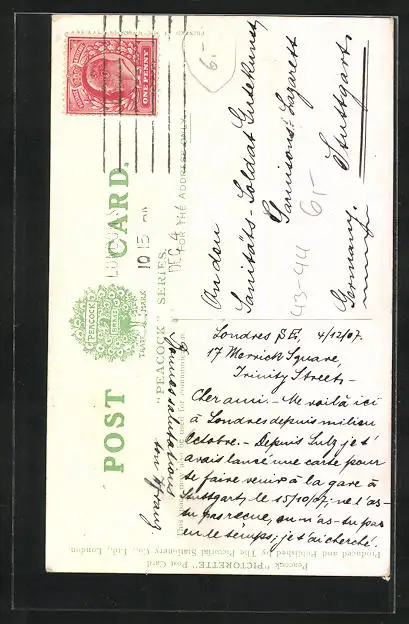 POST CARD.
"PEACOCK" SERIES.
PEACOCK
BRAND
TRADE MARK
FOR THE ADDRESS ONLY.
ONE PENNY
10 15
DEC 4
6.-
An den
Sanitäts-Soldat Gutekunst
Garnisons-Lazarett
Stuttgart.
Germany.
43-44 6,-
Londres S.E., 4/12/07.
17 Merrick Square,
Trinity Street.-
Cher ami.- Me voilà ici
à Londres depuis milieu
Octobre.- Depuis Sulz je t'
avais lancé une carte pour
te faire venir à la gare à
Stuttgart, le 15/10/07; ne l'as-
tu pas reçue, ou n'as-tu pas
eu le temps; je t'ai cherché.
Bonnes salutations
ton
Peacock "PICTORETTE" Post Card
Produced and Published by The Pictorial Stationery Co., Ltd., London